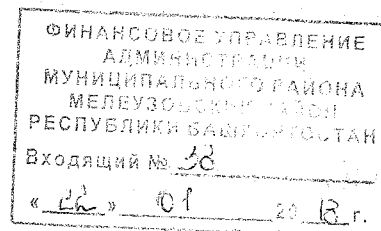 ФИНАНСОВОЕ УПРАВЛЕНИЕ
АДМИНИСТРАЦИИ
МУНИЦИПАЛЬНОГО РАЙОНА
МЕЛЕУЗОВСКИЙ РАЙОН
РЕСПУБЛИКИ БАШКОРТОСТАН
Входящий № 38
« 22 » 01 20 18 г.